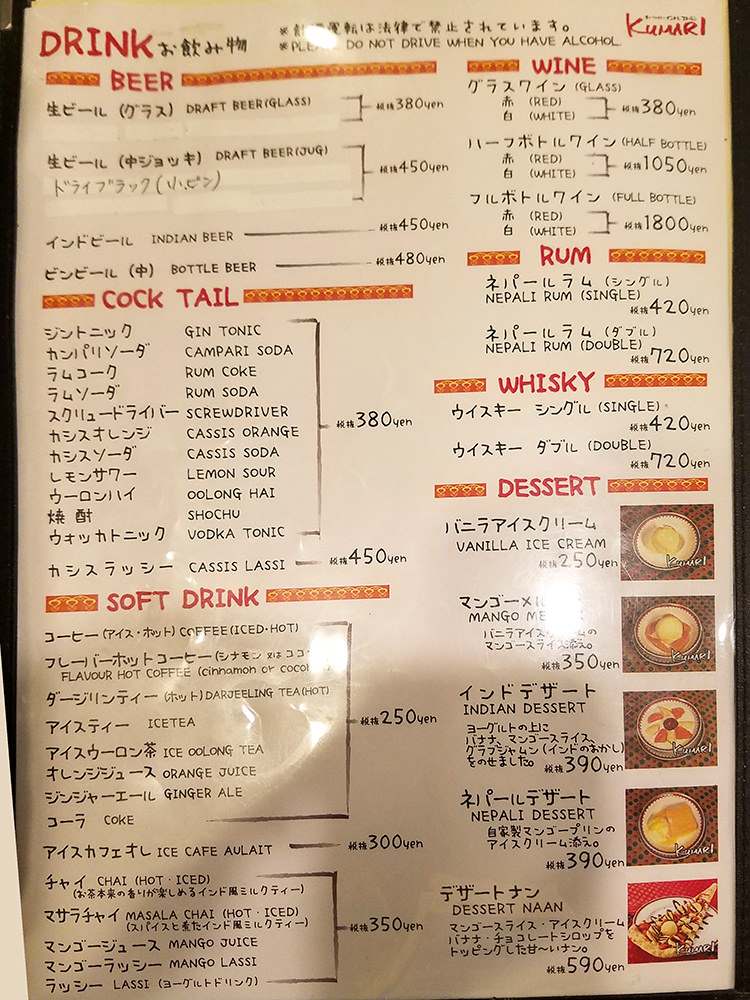 DRINK お飲み物
運転は法律で禁止されています。
※PLEASE DO NOT DRIVE WHEN YOU HAVE ALCOHOL.
KUMARI
BEER
生ビール (グラス) DRAFT BEER(GLASS) 税抜380yen
生ビール (中ジョッキ) DRAFT BEER(JUG) 税抜450yen
ドライブラック(小ビン)
インドビール INDIAN BEER 税抜450yen
ビンビール (中) BOTTLE BEER 税抜480yen
COCK TAIL
ジントニック GIN TONIC
カンパリソーダ CAMPARI SODA
ラムコーク RUM COKE
ラムソーダ RUM SODA
スクリュードライバー SCREWDRIVER
カシスオレンジ CASSIS ORANGE
カシスソーダ CASSIS SODA
レモンサワー LEMON SOUR
ウーロンハイ OOLONG HAI
焼酎 SHOCHU
ウォッカトニック VODKA TONIC
税抜380yen
カシスラッシー CASSIS LASSI 税抜450yen
SOFT DRINK
コーヒー(アイス・ホット) COFFEE(ICED・HOT)
フレーバーホットコーヒー(シナモン 又は ココ
FLAVOUR HOT COFFEE (cinnamon or
ダージリンティー(ホット) DARJEELING TEA(HOT)
アイスティー ICETEA
アイスウーロン茶 ICE OOLONG TEA
オレンジジュース ORANGE JUICE
ジンジャーエール GINGER ALE
コーラ COKE
税抜250yen
アイスカフェオレ ICE CAFE AULAIT 税抜300yen
チャイ CHAI (HOT・ICED)
(お茶本来の香りが楽しめるインド風ミルクティー)
マサラチャイ MASALA CHAI (HOT・ICED)
(スパイスと煮たインド風ミルクティー)
マンゴージュース MANGO JUICE
マンゴーラッシー MANGO LASSI
ラッシー LASSI (ヨーグルトドリンク)
税抜350yen
WINE
グラスワイン (GLASS)
赤 (RED)
白 (WHITE)
税抜380yen
ハーフボトルワイン (HALF BOTTLE)
赤 (RED)
白 (WHITE)
税抜1050yen
フルボトルワイン (FULL BOTTLE)
赤 (RED)
白 (WHITE)
税抜1800yen
RUM
ネパールラム (シングル)
NEPALI RUM (SINGLE)
税抜420yen
ネパールラム (ダブル)
NEPALI RUM (DOUBLE)
税抜720yen
WHISKY
ウイスキー シングル (SINGLE)
税抜420yen
ウイスキー ダブル (DOUBLE)
税抜720yen
DESSERT
バニラアイスクリーム
VANILLA ICE CREAM
税抜250yen
KUMARI
マンゴーメル
MANGO
バニラアイスクリームの
マンゴースライス添え。
税抜350yen
KUMARI
インドデザート
INDIAN DESSERT
ヨーグルトの上に
バナナ、マンゴースライス、
グラブジャムン(インドのおかし)
をのせました。 税抜390yen
KUMARI
ネパールデザート
NEPALI DESSERT
自家製マンゴープリンの
アイスクリーム添え。
税抜390yen
KUMARI
デザートナン
DESSERT NAAN
マンゴースライス・アイスクリーム
バナナ・チョコレートシロップを
トッピングした甘〜いナン。
税抜590yen
KUMARI